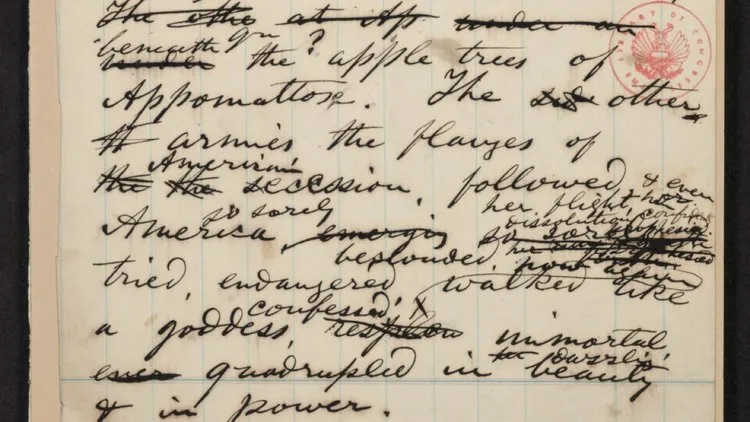 The othe at Ap under an
beneath qu
under the ? apple trees of
Appomattox. The sid other
A armies the flanges of
American
the the secession, followed & even
her flight nor
so sorely dissolution
America, emerging so sor
beclouded
now
tried, endangered walked like
confessed, X
a goddess, resplen immortal
her dazzlin'
ever quadrupled in beauty
& in power.
LIBRARY OF CONGRESS